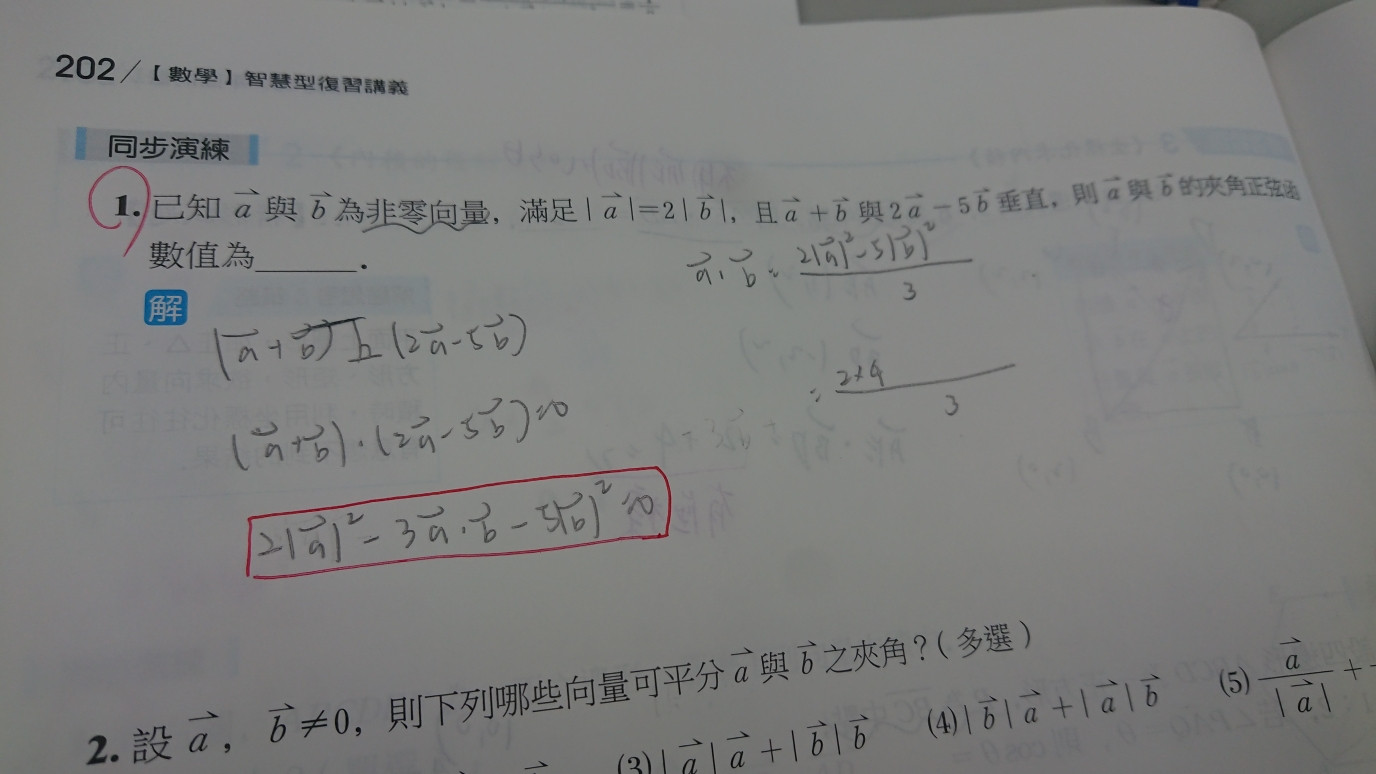 202/【數學】智慧型復習講義
同步演練
1. 已知 a⃗ 與 b⃗ 為非零向量，滿足 | a⃗ |=2| b⃗ |，且 a⃗ + b⃗ 與 2a⃗ − 5b⃗ 垂直，則 a⃗ 與 b⃗ 的夾角正弦函
數值為______.
a⃗ · b⃗ = (2|a⃗|² − 5|b⃗|²) / 3
解
(a⃗ + b⃗) ⊥ (2a⃗ − 5b⃗)
= 2×4 / 3
(a⃗ + b⃗) · (2a⃗ − 5b⃗) = 0
2|a⃗|² − 3a⃗ · b⃗ − 5|b⃗|² = 0
2. 設 a⃗，b⃗ ≠ 0，則下列哪些向量可平分 a⃗ 與 b⃗ 之夾角？(多選)
(3)| a⃗ | a⃗ + | b⃗ | b⃗ (4)| b⃗ | a⃗ + | a⃗ | b⃗ (5) a⃗ / | a⃗ | +